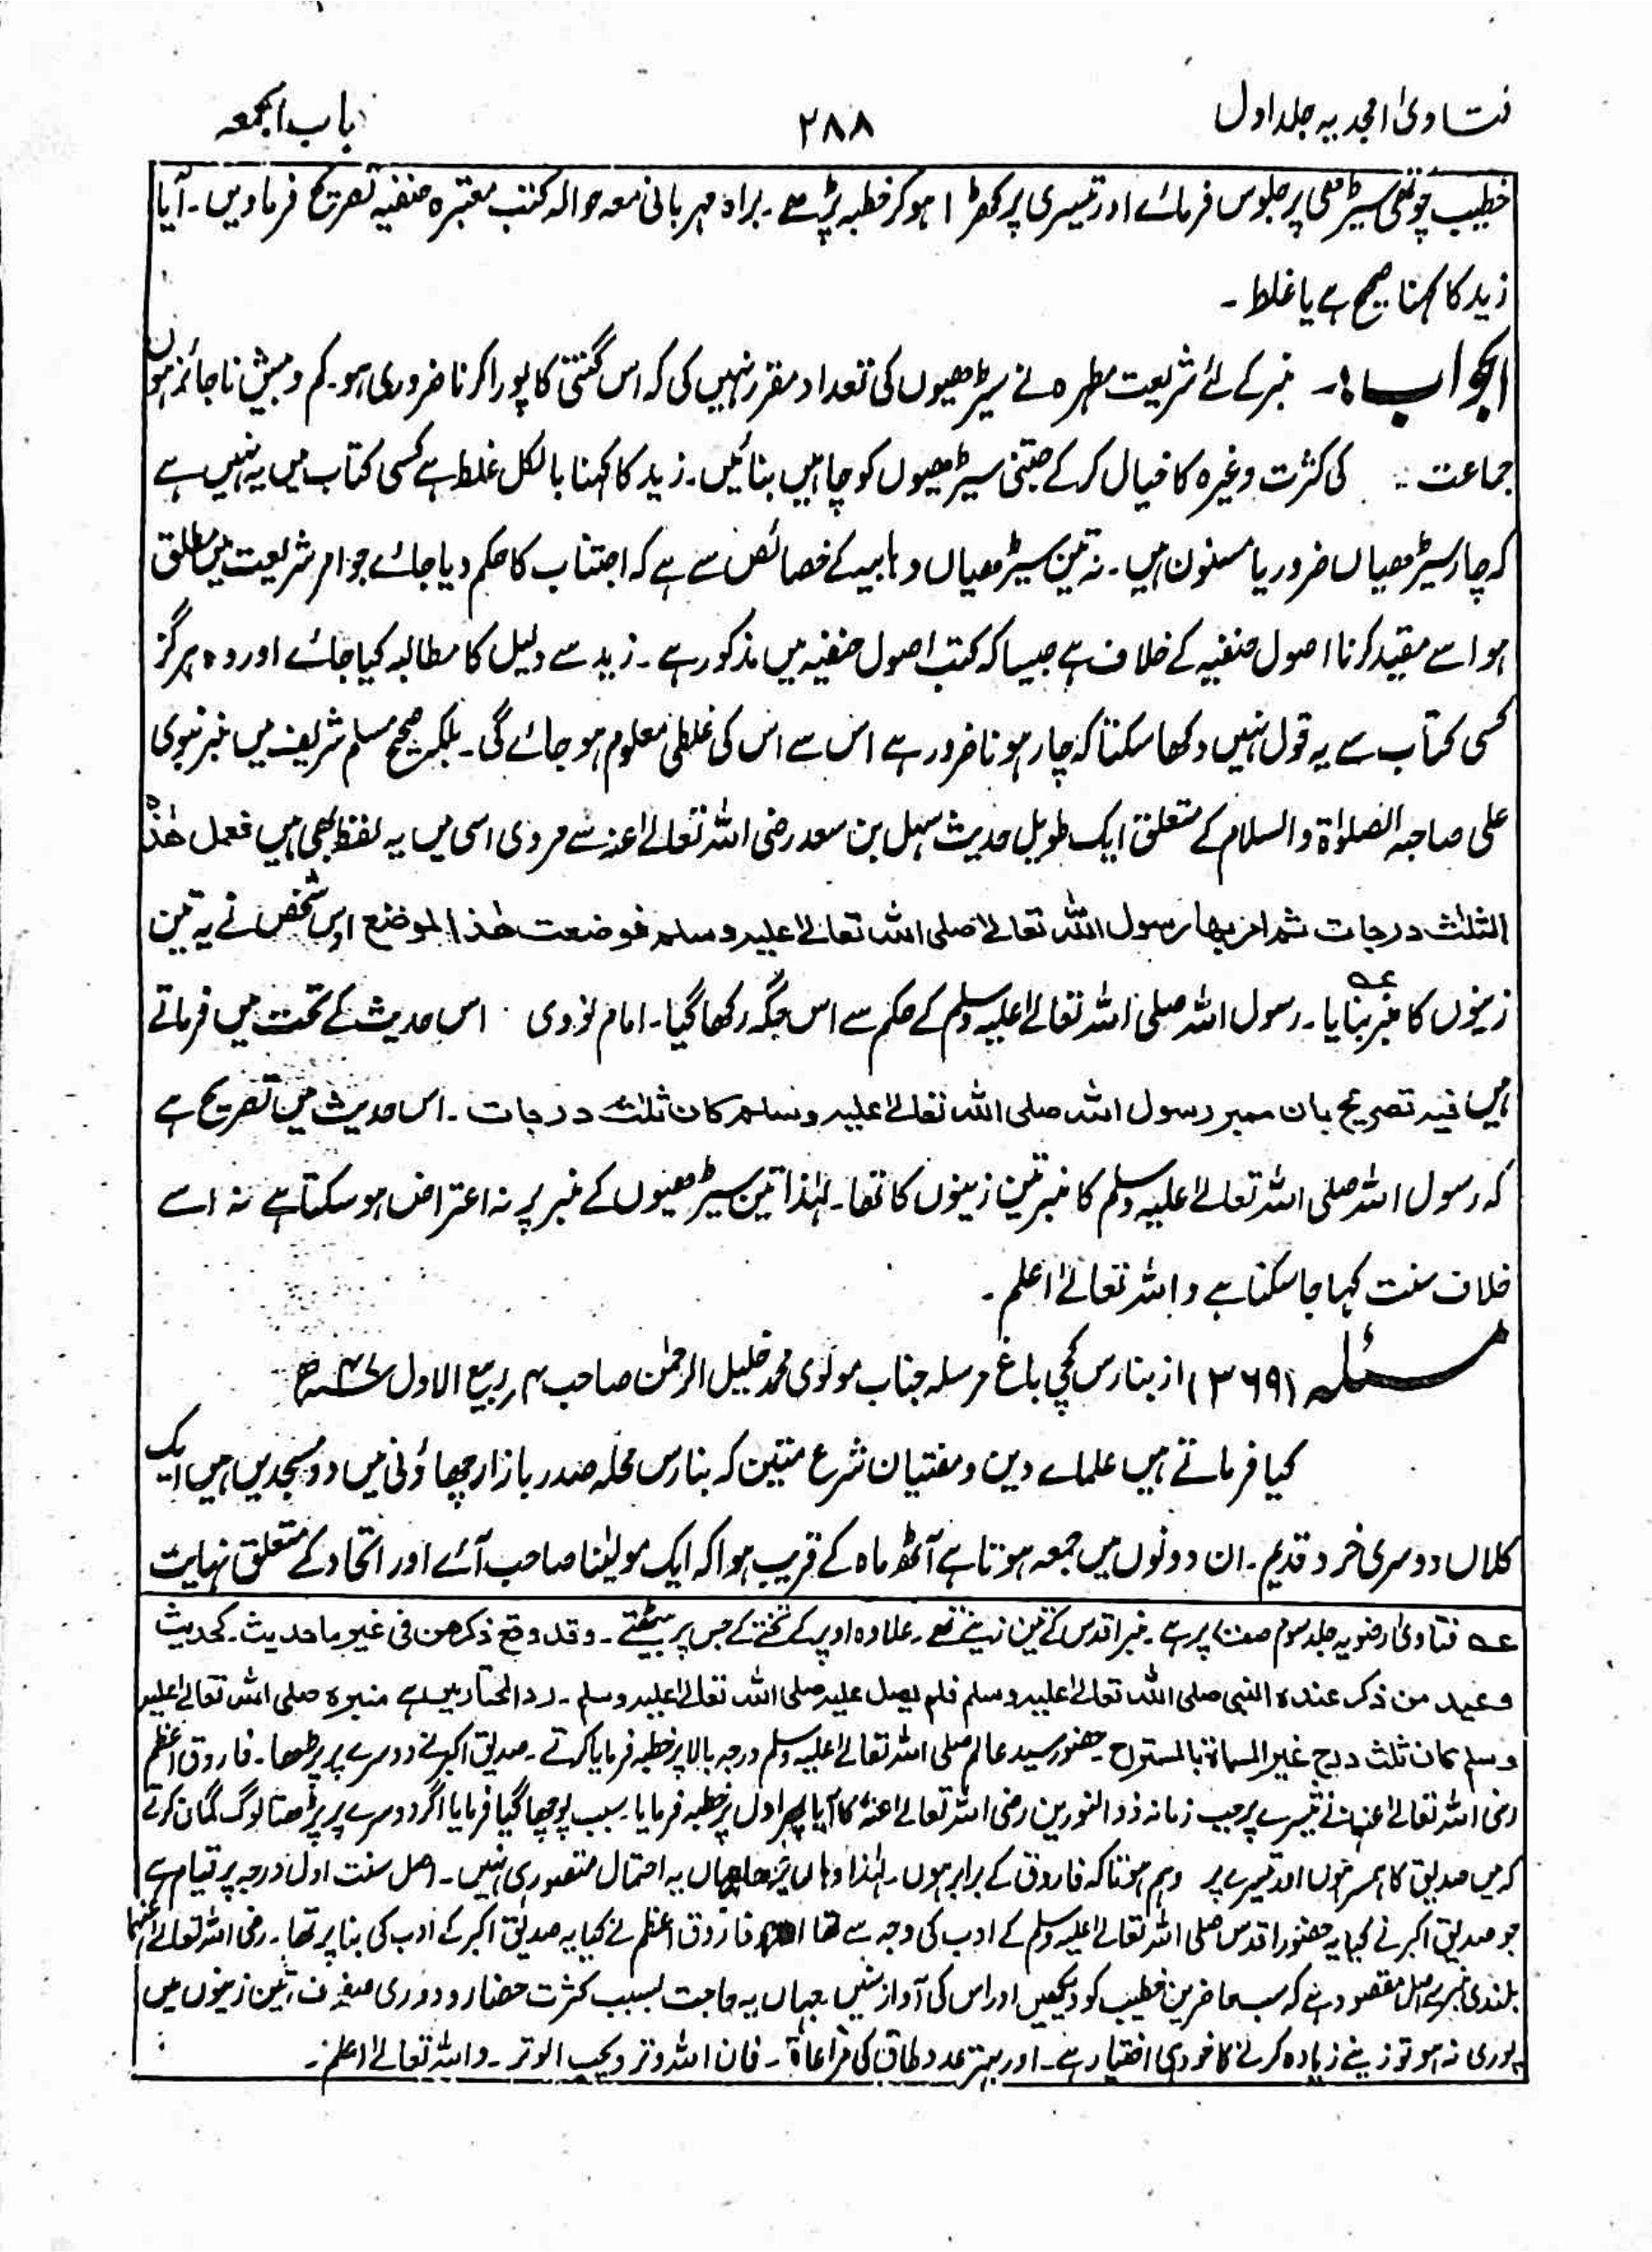 فتاویٰ امجدیہ جلد اول
۲۸۸
باب الجمعہ
خطیب چوتھی سیڑھی پر جلوس فرمائے اور تیسری پر کھڑا ہو کر خطبہ پڑھے۔ براہ مہربانی معہ حوالہ کتب معتبرہ حنفیہ تصریح فرمادیں۔ آیا
زید کا کہنا صحیح ہے یا غلط۔
الجواب:۔ منبر کے لئے شریعت مطہرہ نے سیڑھیوں کی تعداد مقرر نہیں کی کہ اس گنتی کا پورا کرنا ضروری ہو۔ کم و بیش ناجائز ہوں
جماعت کی کثرت وغیرہ کا خیال کرکے جتنی سیڑھیوں کو چاہیں بنائیں۔ زید کا کہنا بالکل غلط ہے کسی کتاب میں یہ نہیں ہے
کہ چار سیڑھیاں ضرور یا مسنون ہیں۔ نہ تین سیڑھیاں وہابیہ کے خصائص سے ہے کہ اجتناب کا حکم دیا جائے جو امر شریعت میں مطلق
ہو اسے مقید کرنا اصول حنفیہ کے خلاف ہے جیسا کہ کتب اصول حنفیہ میں مذکور ہے۔ زید سے دلیل کا مطالبہ کیا جائے اور وہ ہرگز
کسی کتاب سے یہ قول نہیں دکھا سکتا کہ چار ہونا ضرور ہے اس سے اس کی غلطی معلوم ہو جائے گی۔ بلکہ صحیح مسلم شریف میں منبر نبوی
علی صاحبہ الصلوٰۃ والسلام کے متعلق ایک طویل حدیث سہل بن سعد رضی اللہ تعالےٰ عنہ سے مروی اسی میں یہ لفظ بھی ہیں فعمل ھٰذہ
الثلٰث درجات ثم امر بھا رسول اللہ تعالےٰ صلی اللہ تعالےٰ علیہ وسلم فوضعت ھٰذا الموضع اس شخص نے یہ تین
زینوں کا منبر بنایا۔ عہ رسول اللہ صلی اللہ تعالےٰ علیہ وسلم کے حکم سے اس جگہ رکھا گیا۔ امام نووی اس حدیث کے تحت میں فرماتے
ہیں فیہ تصریح بان ممبر رسول اللہ صلی اللہ تعالےٰ علیہ وسلم کان ثلٰث درجات۔ اس حدیث میں تصریح ہے
کہ رسول اللہ صلی اللہ تعالےٰ علیہ وسلم کا منبر تین زینوں کا تھا۔ لہٰذا تین سیڑھیوں کے منبر پر نہ اعتراض ہو سکتا ہے نہ اسے
خلاف سنت کہا جا سکتا ہے واللہ تعالےٰ اعلم۔
مسئلہ (۳۶۹) از بنارس کچی باغ مرسلہ جناب مولوی محمد خلیل الرحمٰن صاحب ۴ ربیع الاول
کیا فرماتے ہیں علمائے دین و مفتیان شرع متین کہ بنارس محلہ صدر بازار چھاؤنی میں دو مسجدیں ہیں ایک
کلاں دوسری خرد قدیم۔ ان دونوں میں جمعہ ہوتا ہے آٹھ ماہ کے قریب ہوا کہ ایک مولینا صاحب آئے اور اتحاد کے متعلق نہایت
عہ فتاویٰ رضویہ جلد سوم پر ہے۔ منبر اقدس کے تین زینے تھے۔ علاوہ اوپر کے تختے کے جس پر بیٹھتے۔ وقد وقع ذکرھن فی غیر ما حدیث۔ کحدیث
وعید من ذکر عندہ النبی صلی اللہ تعالےٰ علیہ وسلم فلم یصل علیہ صلی اللہ تعالےٰ علیہ وسلم۔ ردالمحتار میں ہے منبرہ صلی اللہ تعالےٰ علیہ
وسلم کان ثلٰث درج غیر المسماۃ بالمستراح۔ حضور سید عالم صلی اللہ تعالےٰ علیہ وسلم درجہ بالا پر خطبہ فرمایا کرتے۔ صدیق اکبر نے دوسرے پر پڑھا۔ فاروق اعظم
رضی اللہ تعالےٰ عنہما نے تیسرے پر جب زمانہ ذوالنورین رضی اللہ تعالےٰ عنہ کا آیا پھر اول پر خطبہ فرمایا۔ سبب پوچھا گیا فرمایا اگر دوسرے پر پڑھتا لوگ گمان کرتے
کہ میں صدیق کا ہمسر ہوں اور تیسرے پر وہم ہوتا کہ فاروق کے برابر ہوں۔ لہٰذا وہاں پڑھا جہاں یہ احتمال متصور ہی نہیں۔ اصل سنت اول درجہ پر قیام ہے
جو صدیق اکبر نے کیا یہ حضور اقدس صلی اللہ تعالےٰ علیہ وسلم کے ادب کی وجہ سے تھا اور فاروق اعظم نے کیا یہ صدیق اکبر کے ادب کی بنا پر تھا۔ رضی اللہ تعالےٰ عنہما
بلندی منبر سے اصل مقصود ہے کہ سب حاضرین خطیب کو دیکھیں اور اس کی آواز سنیں جہاں یہ حاجت بسبب کثرت حضار و دوری صفوف تین زینوں میں
پوری نہ ہو تو زینے زیادہ کرنے کا خود ہی اختیار ہے۔ اور بہتر عدد طاق کی مراعاۃ۔ فان اللہ وتر ویحب الوتر۔ واللہ تعالےٰ اعلم۔